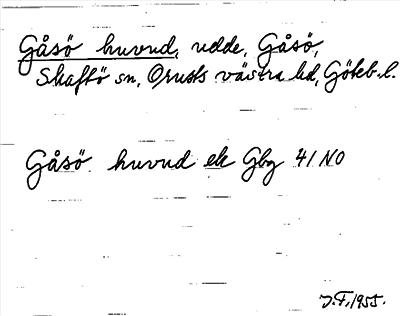 Gåsö huvud, udde, Gåsö,
Skaftö sn, Orusts västra hd, Göteb. l.
Gåsö huvud ek Gbg 41 NO
J.F. 1955.